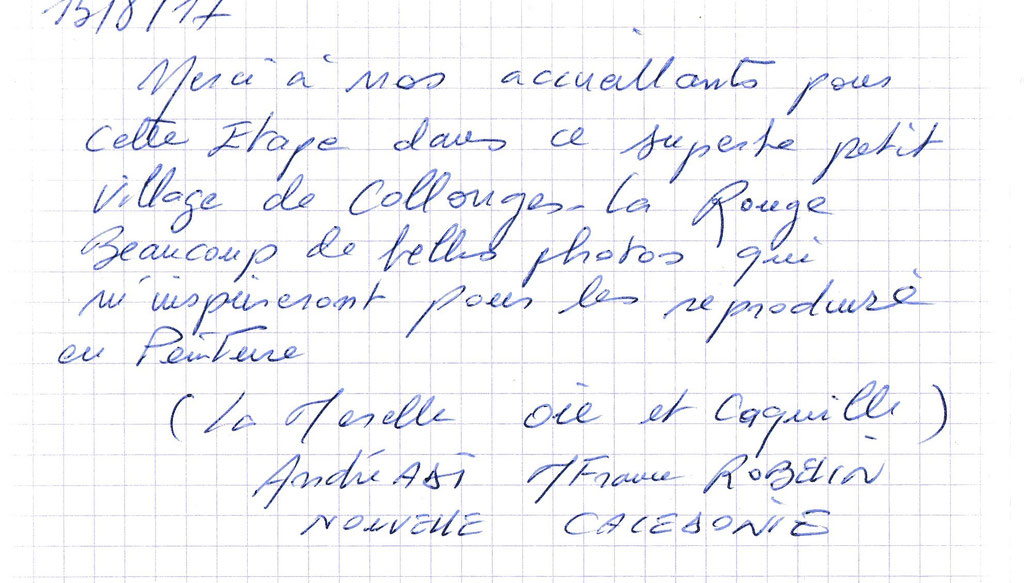 15/8/17
Merci à nos accueillants pour
cette Etape dans ce superbe petit
village de Collonges-La Rouge
Beaucoup de belles photos qui
m'inspireront pour les reproduire
en Peinture
(La Moselle Oie et Coquille)
André ABI M/France ROBELIN
NOUVELLE CALEDONIE